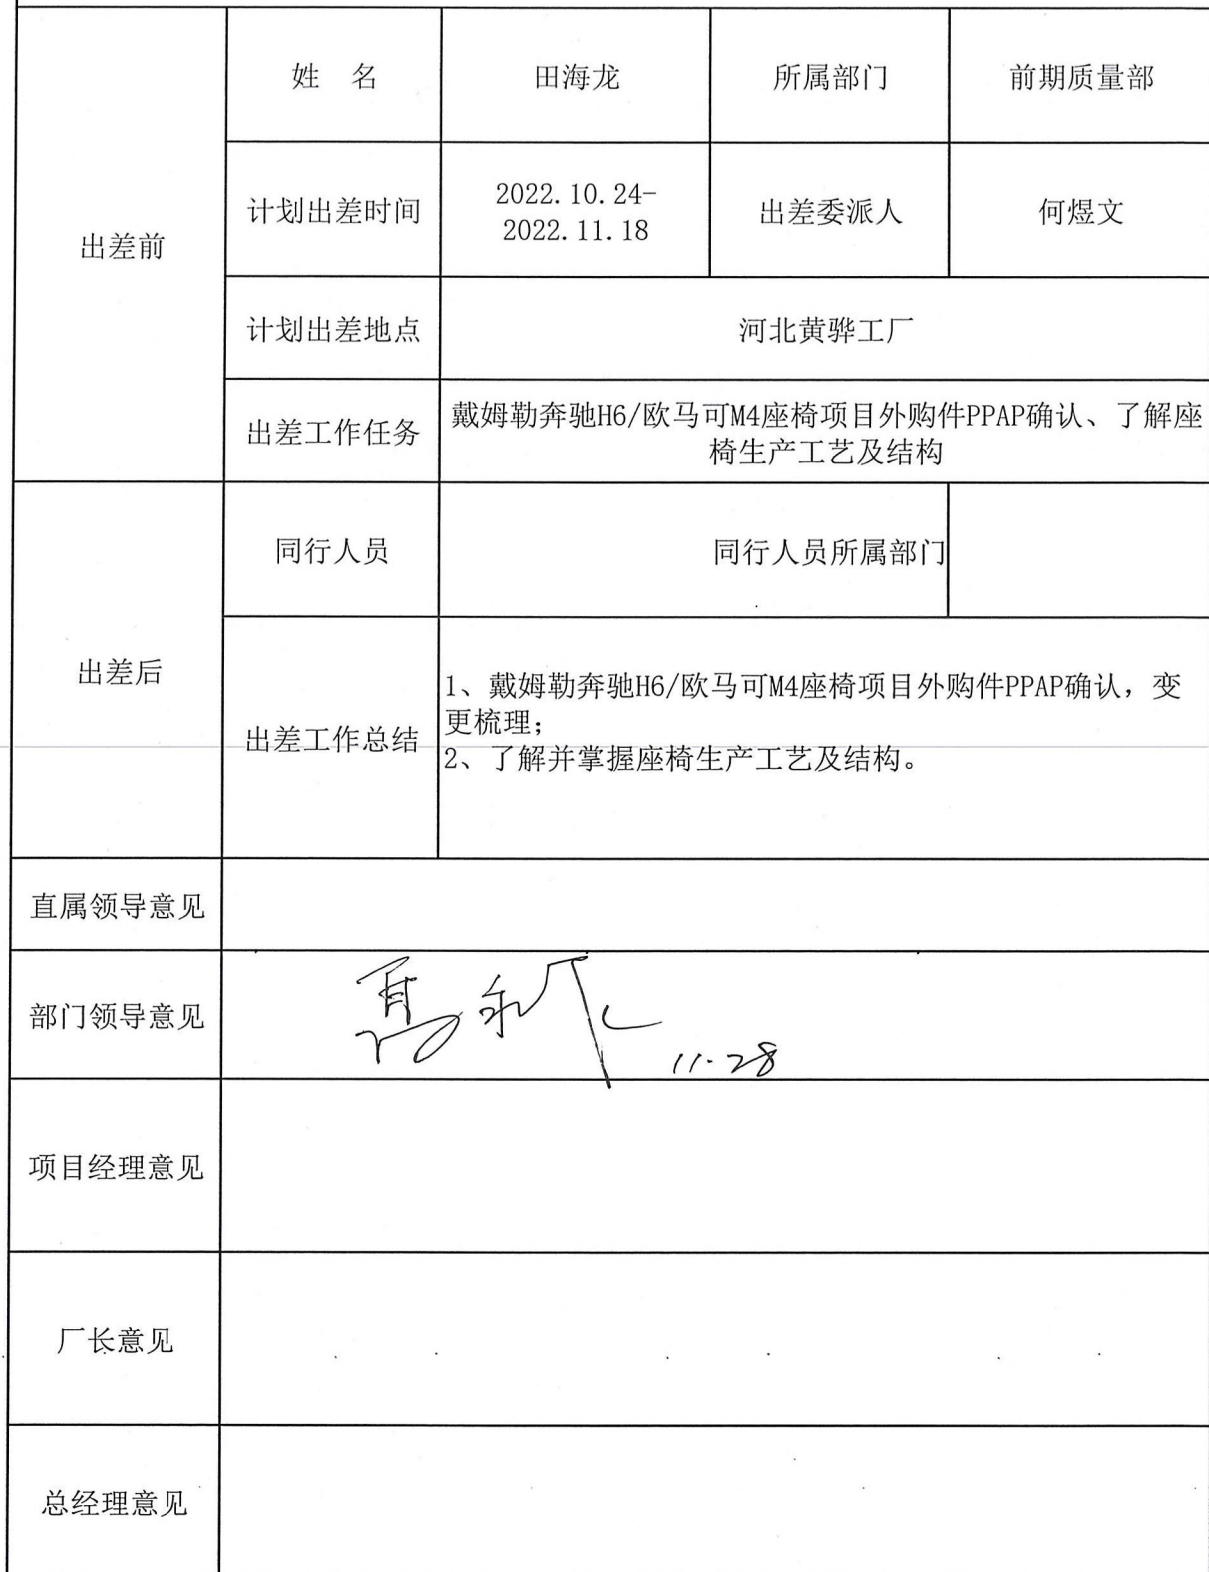 姓 名
田海龙
所属部门
前期质量部
出差前
计划出差时间
2022.10.24-
2022.11.18
出差委派人
何煜文
计划出差地点
河北黄骅工厂
出差工作任务
戴姆勒奔驰H6/欧马可M4座椅项目外购件PPAP确认、了解座
椅生产工艺及结构
出差后
同行人员
同行人员所属部门
出差工作总结
1、戴姆勒奔驰H6/欧马可M4座椅项目外购件PPAP确认，变
更梳理；
2、了解并掌握座椅生产工艺及结构。
直属领导意见
部门领导意见
11.28
项目经理意见
厂长意见
总经理意见